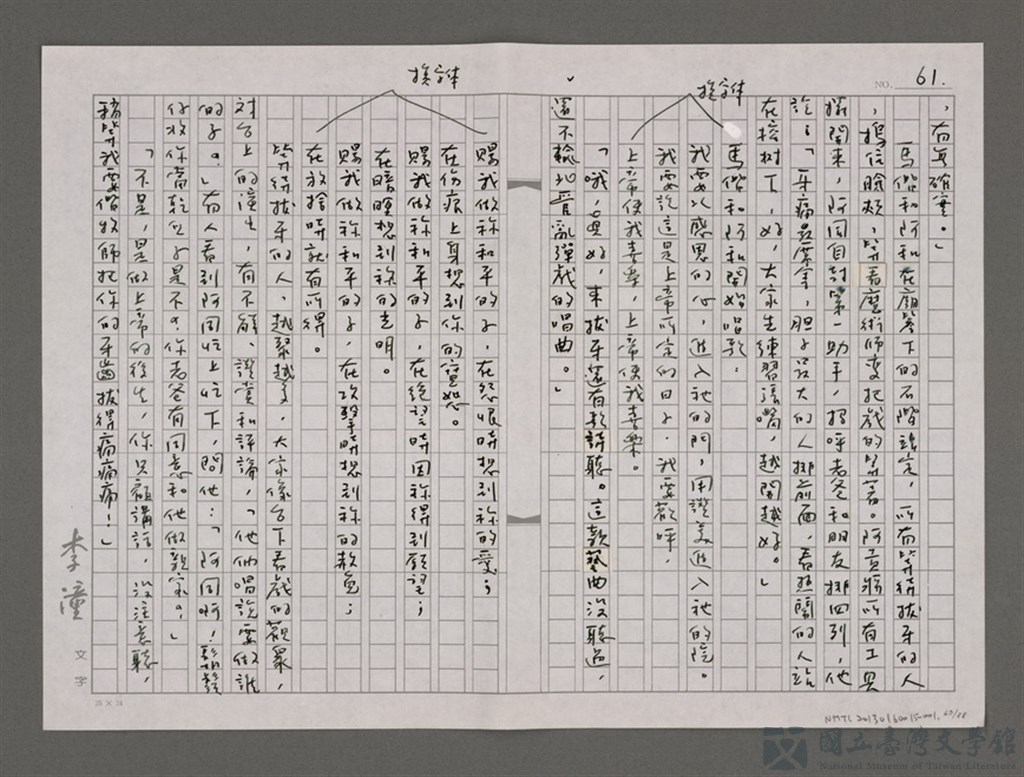 NO. 61.
換字体
換字体
，有夠確實。」
馬偕和阿和在廟簷下的石階站定，所有等待拔牙的人
，摀住臉頰，等看魔術師變把戲的等著。阿貢將所有工具
攤開來，阿同自封第一助手，招呼老爸和朋友排四列，他
說：「牙痛最厲害，胆子最大的人排前面，看熱鬧的人站
在榕樹下，好，大家先練習張嘴，越開越好。」
馬偕和阿和開始唱歌，
我要以感恩的心，進入祂的門，用讚美進入祂的院。
我要說這是上帝所定的日子，我要歡呼，
上帝使我喜樂，上帝使我喜樂。
「哦，真好，來拔牙還有歌詩聽。這款藝曲沒聽過，
還不輸北管亂彈戲的唱曲。」
賜我做祢和平的子，在怨恨時想到祢的愛；
在傷痕上身想到你的寬恕。
賜我做祢和平的子，在絕望時因祢得到願望；
在暗暝想到祢的光明。
賜我做祢和平的子，在攻擊時想到祢的赦免；
在放捨時就有所得。
等待拔牙的人，越聚越多，大家像台下看戲的觀眾，
對台上的演出，有不解、讚賞和評論，「他們唱說要做誰
的子。」有人看到阿同忙上忙下，問他：「阿同啊！鬍鬚
仔收你當乾兒子是不？你老爸有同意和他做親家？」
「不是，是做上帝的後生，你只顧講話，沒注意聽，
稍等我要偕牧師把你的牙齒拔得痛痛痛！」
李潼
文字
25 × 24
NMTL 20130160015-001. 62/88
國立臺灣文學館
National Museum of Taiwan Literature